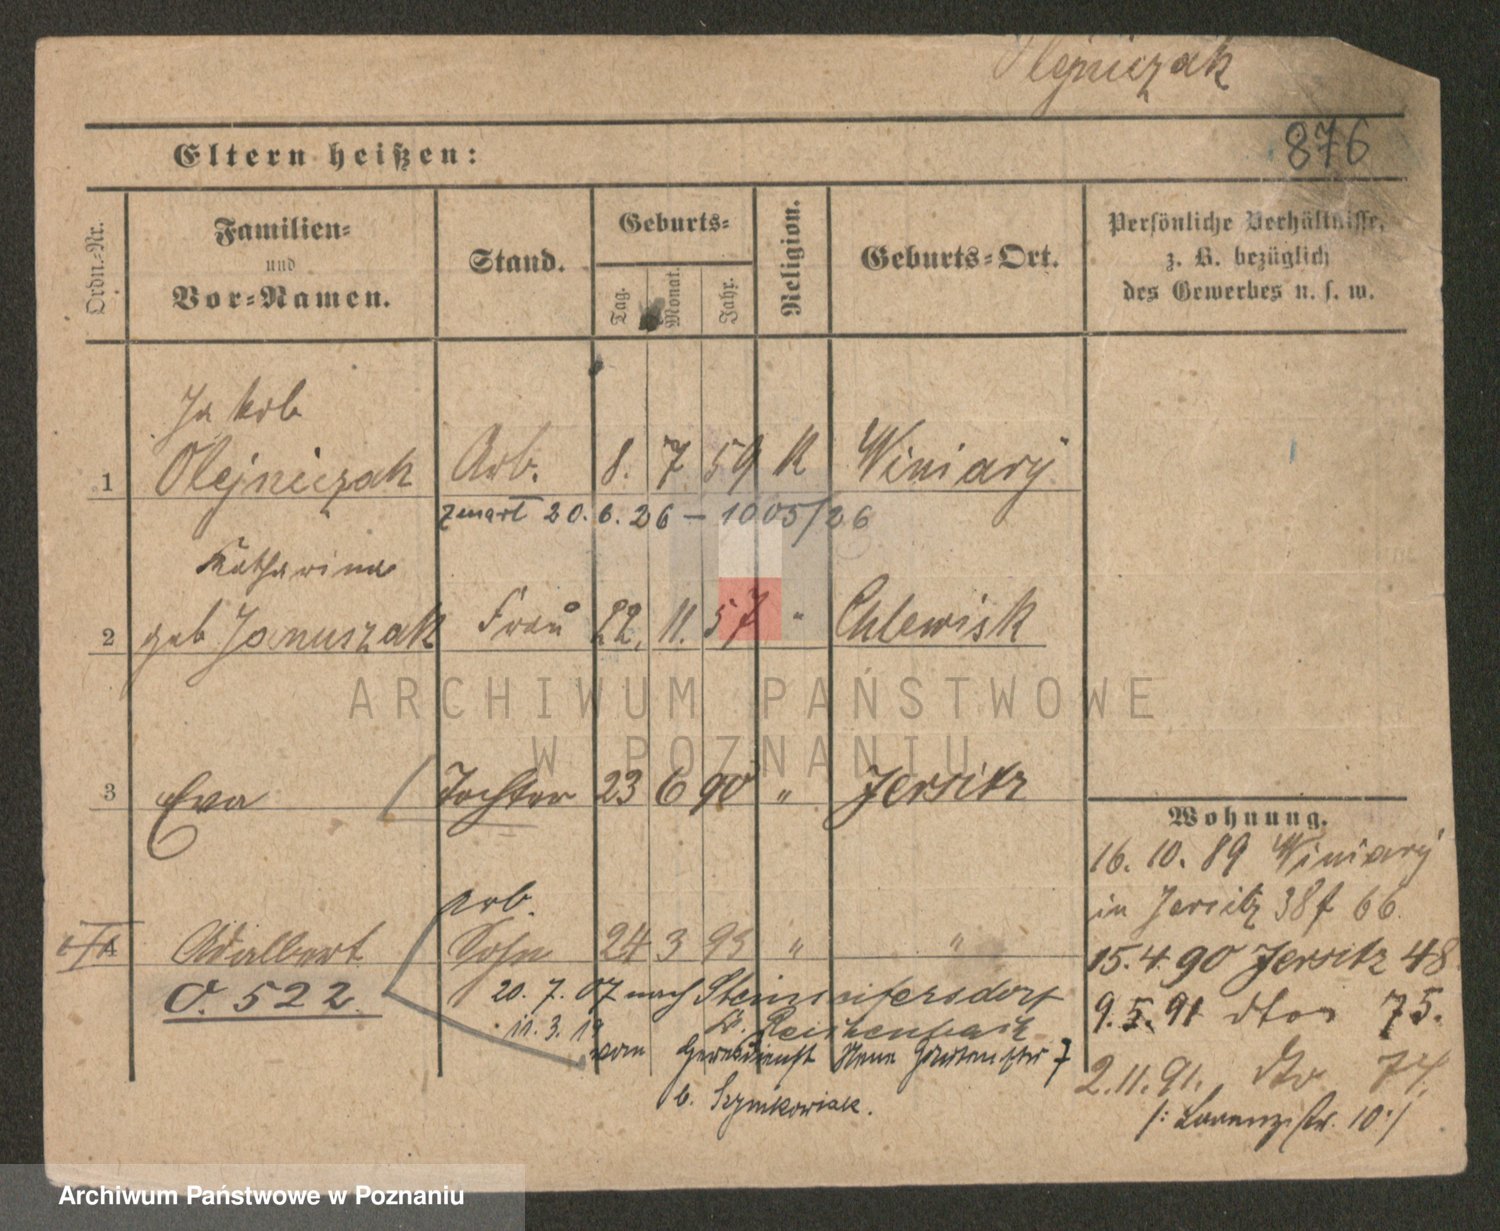 Olejniczak
876
Eltern heißen:
Ordn.-Nr.
Familien-
und
Vor-Namen.
Stand.
Geburts-
Tag.
Monat.
Jahr.
Religion.
Geburts-Ort.
Persönliche Verhältnisse,
z. B. bezüglich
des Gewerbes u. s. w.
Jakob
1 Olejniczak Arb. 8. 7. 59 K Winiary
zmarł 20. 6. 26 — 1005/26
Katharina
2 geb Januszak Frau 22. 11. 57 " Chlewisk
ARCHIWUM PAŃSTWOWE
W POZNANIU
3 Eva Tochter 23 6 90 " Jersitz
Wohnung.
16. 10. 89 Winiary
in Jersitz 38f 66.
15. 4. 90 Jersitz 48
9. 5. 91 dto 75.
2. 11. 91. dto 74.
/: Lorenzstr. 10 :/
Arb.
4 Adalbert Sohn 24 3 93 " "
O. 522
20. 7. 07 nach Steinseifersdorf
Kr. Reichenbach
11. 3. 19 vom Heeresdienst Neue Gartenstr 7
b. Szymkowiak.
Archiwum Państwowe w Poznaniu